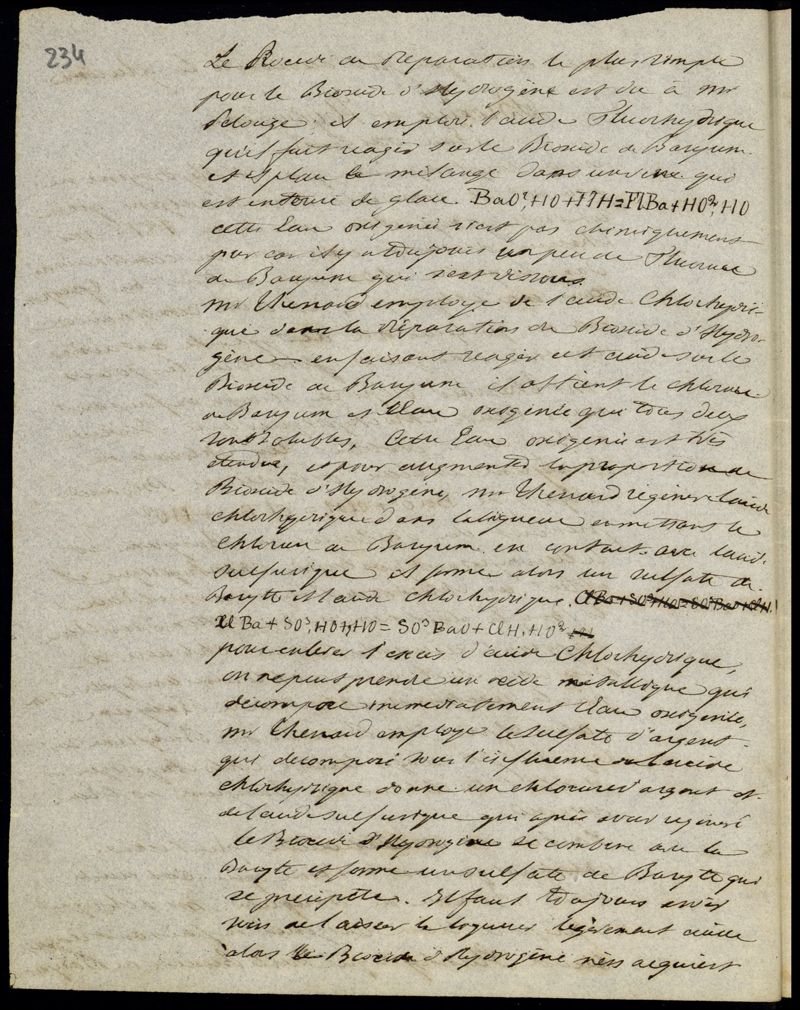 234
Le Procédé de Préparation le plus simple
pour le Bioxide d'Hydrogène est du à Mr
Pelouze; il emploi l'acide Fluorhydrique
qu'il fait réagir sur le Bioxide de Baryum
et il place le mélange dans un vase qui
est entouré de glace. BaO², HO + FlH = FlBa + HO², HO
cette Eau oxigénée n'est pas chimiquement
pur car il y a toujours un peu de Fluorure
de Baryum qui s'est dissous
Mr Thenard employe de l'acide Chlorhydri-
que dans la Préparation du Bioxide d'Hydro-
gène en faisant réagir cet acide sur le
Bioxide de Baryum il obtient le chlorure
de Baryum et l'Eau oxigénée qui tous deux
sont solubles, Cette Eau oxigénée est très
étendue, et pour augmenter la proportion de
Bioxide d'Hydrogène, Mr Thenard régénère l'acide
chlorhydrique dans la liqueur en mettant le
Chlorure de Baryum en contact avec l'acide
sulfurique il forme alors un sulfate de
Baryte et l'acide chlorhydrique. ClBa + SO³, HO = SO³BaO + ClH.
ClBa + SO³, HO, HO = SO³ BaO + ClH, HO²
pour enlever l'excès d'acide Chlorhydrique,
on ne peut prendre un oxide métallique qui
décompose immédiatement l'Eau oxigénée,
Mr Thenard employe le sulfate d'argent
qui décomposé sous l'influence de l'acide
chlorhydrique donne un chlorure d'argent et
de l'acide sulfurique qui après avoir régénéré
le Bioxide d'Hydrogène se combine avec la
Baryte et forme un sulfate de Baryte qui
se précipite. Il faut toujours avoir
soin de laisser la liqueur légèrement acide
alors le Bioxide d'Hydrogène acquiert